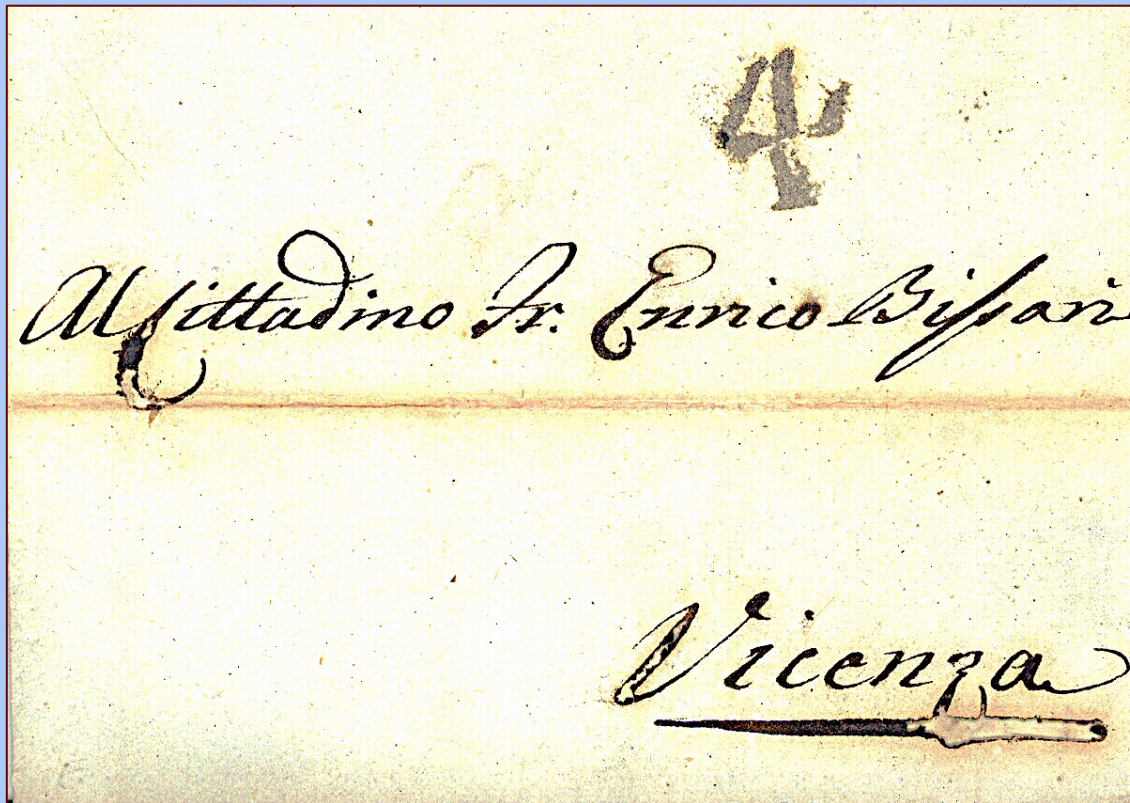 4
Al Cittadino Fr. Enrico Bissari
Vicenza